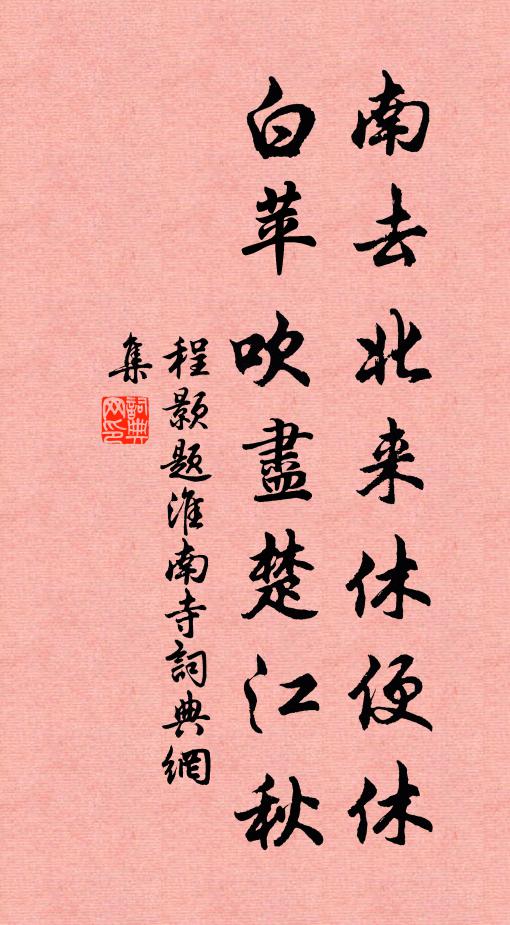 南去北来休便休
白苹吹盡楚江秋
程颢题淮南寺詞典網
集
詞典
网印